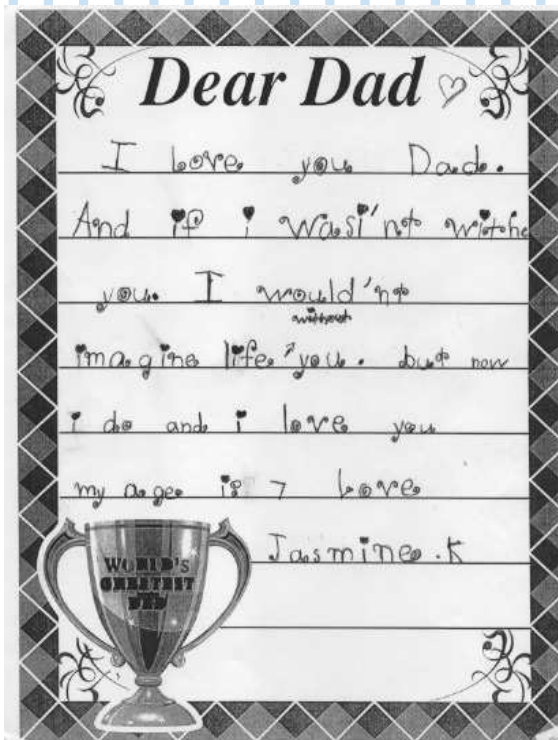 Dear Dad
I love you Dad.
And if i wasi'nt withe
you. I would'nt
without
imagine life you. but now
i do and i love you
my age is 7 love
Jasmine.K
WORLD'S
GREATEST
DAD